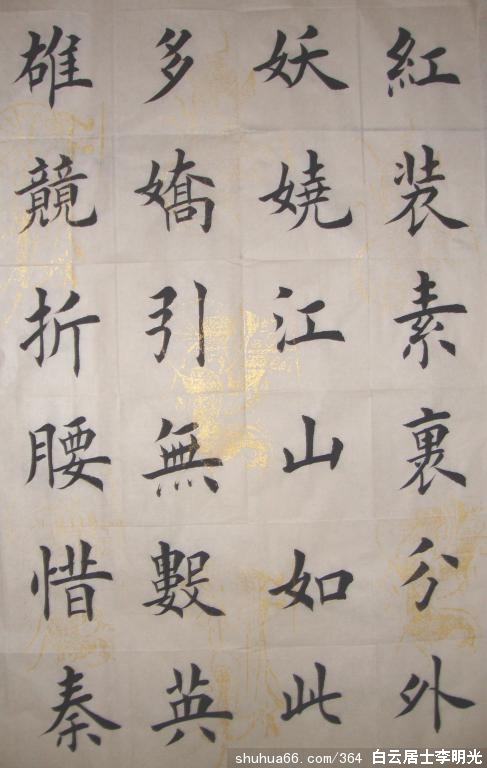 紅装素裹分外
妖嬈江山如此
多嬌引無數英
雄競折腰惜秦
shuhua66.com/364 白云居士李明光